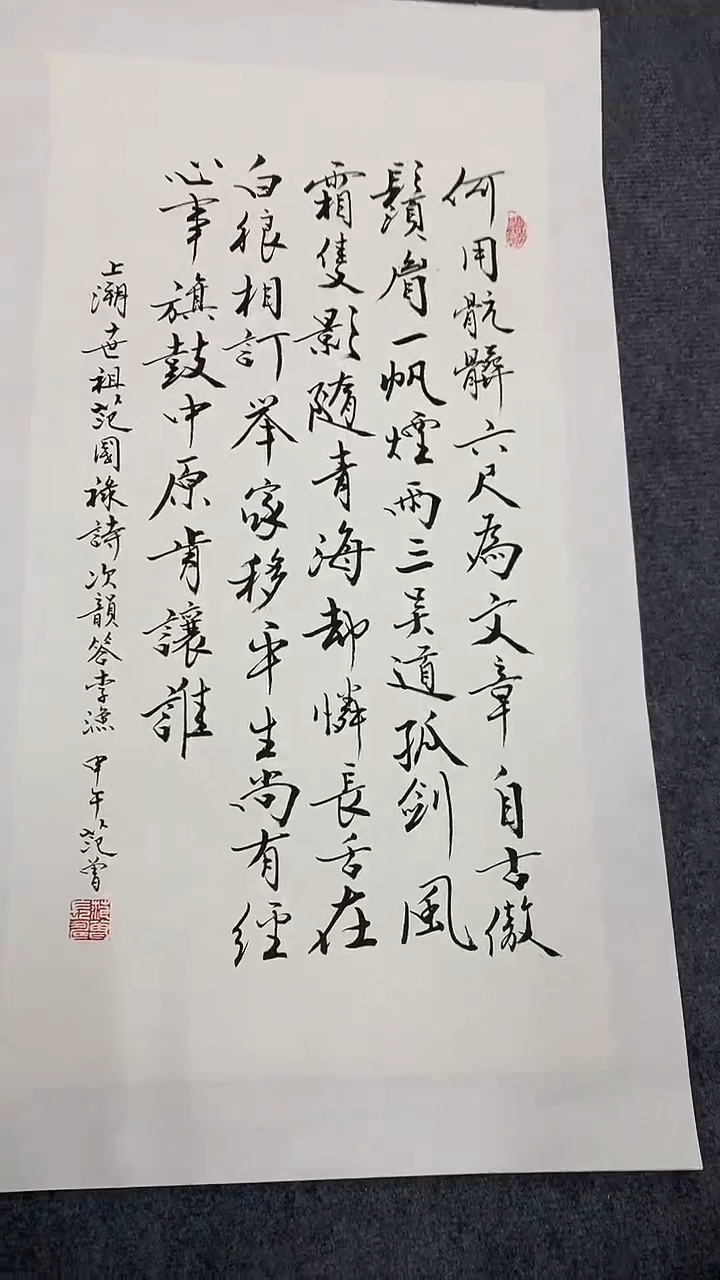 何用骯髒六尺為文章自古傲
鬚眉一帆煙雨三吳道孤劍風
霜隻影隨青海却憐長舌在
白狼相訂举家移平生尚有經
心事旗鼓中原肯讓誰
上溯十世祖范國祿詩次韻答李漁 甲午范曾